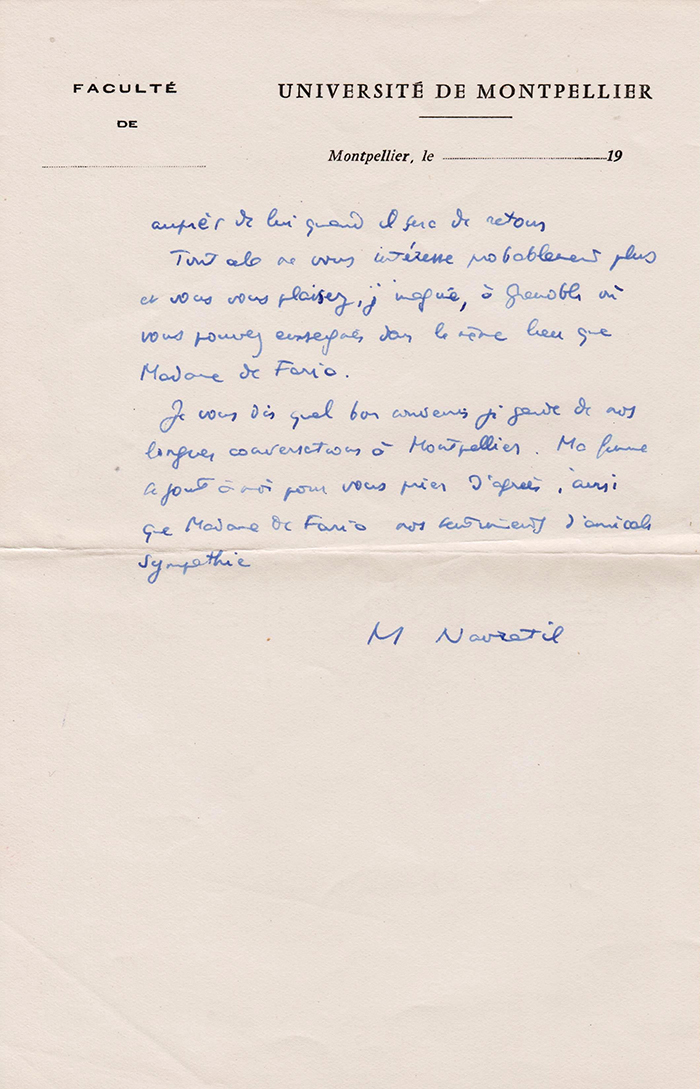 FACULTÉ
DE
UNIVERSITÉ DE MONTPELLIER
Montpellier, le 19
auprès de lui quand il sera de retour
Tout cela ne vous intéresse probablement plus
et vous vous plaisez, j'imagine, à Grenoble où
vous pouvez enseigner dans le même lieu que
Madame de Faria.
Je vous dis quel bon souvenir je garde de nos
longues conversations à Montpellier. Ma femme
se joint à moi pour vous prier d'agréer, ainsi
que Madame de Faria nos sentiments d'amicale
sympathie
M Navratil